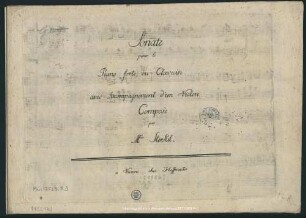 Sonate
pour le
Piano-forte, ou Clavecin
avec Accompagnement d'un Violon
Composée
par
Mr. Sterkel.